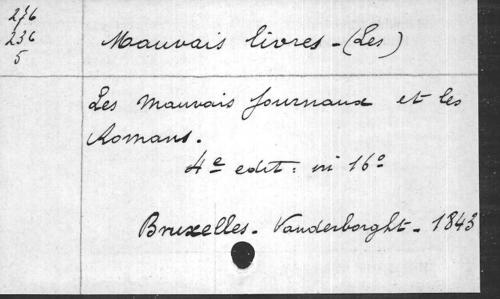 276
236
5
Mauvais livres - (Les)
Les Mauvais Journaux et les
Romans.
4e edit: in 16o
Bruxelles - Vanderborght - 1843